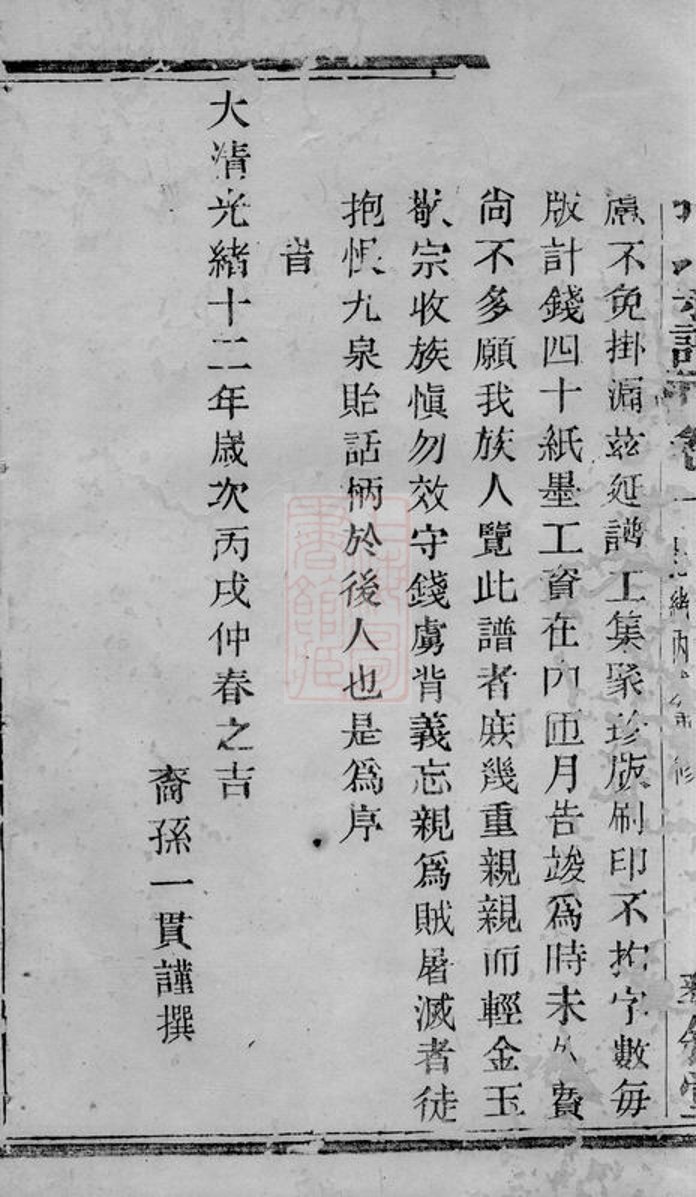 慮不免掛漏茲延譜工集聚珍版刷印不拘字數每
版計錢四十紙墨工資在內匝月告竣爲時未久費
尙不多願我族人覽此譜者庻幾重親親而輕金玉
敬宗收族愼勿效守錢虜背義忘親爲賊屠滅者徒
抱恨九泉貽話柄於後人也是爲序
旹
大清光緒十二年歲次丙戌仲春之吉
裔孫一貫謹撰